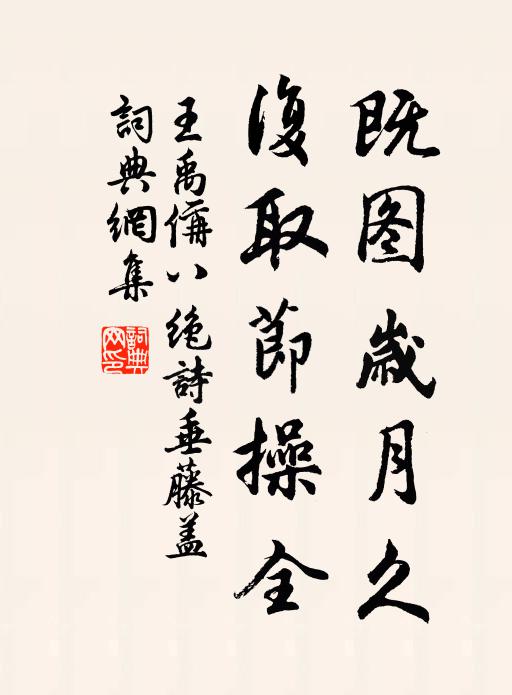 既图歲月久
復取節操全
王禹偁八绝詩垂藤盖
詞典網集
詞典
网印